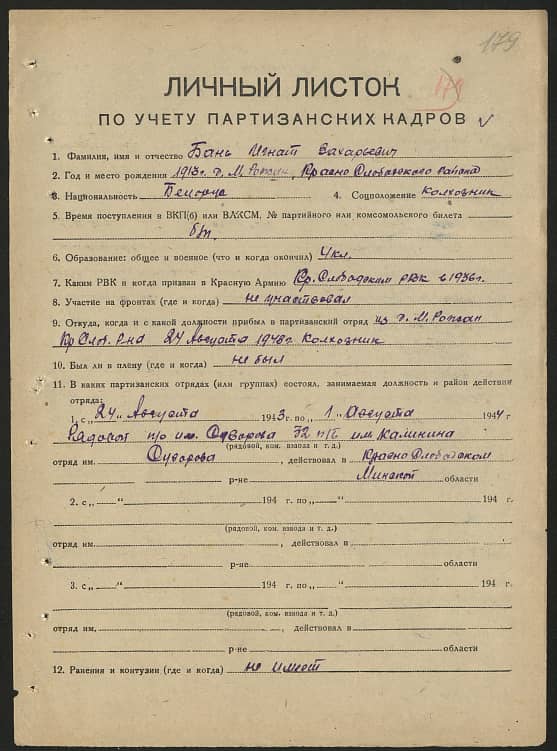 179
179
ЛИЧНЫЙ ЛИСТОК
ПО УЧЕТУ ПАРТИЗАНСКИХ КАДРОВ
1. Фамилия, имя и отчество Бань Игнат Захарьевич
2. Год и место рождения 1913г. д. М. Рожан, Красно Слободского района
3. Национальность Белорус 4. Соцположение Колхозник
5. Время поступления в ВКП(б) или ВЛКСМ, № партийного или комсомольского билета
б/п.
6. Образование: общее и военное (что и когда окончил) 4 кл.
7. Каким РВК и когда призван в Красную Армию Кр. Слободским РВК в 1936г.
8. Участие на фронтах (где и когда) не участвовал
9. Откуда, когда и с какой должности прибыл в партизанский отряд из д. М. Рожан
Кр Слоб. р-на 24 Августа 1943г. Колхозник
10. Был ли в плену (где и когда) не был
11. В каких партизанских отрядах (или группах) состоял, занимаемая должность и район действия
отряда:
1. с „24„ Августа 1943 г. по „1„ Августа 1944 г
Рядовой п/о им. Суворова 32 п/б им Калинина
(рядовой, ком. взвода и т. д.)
отряд им. Суворова, действовал в Красно Слободском
р-не Минской области
2. с „ “ 194 г. по „ “ 194 г.
(рядовой, ком. взвода и т. д.)
отряд им. , действовал в
р-не области
3. с „ “ 194 г. по „ “ 194 г.
(рядовой, ком. взвода и т. д.)
отряд им. , действовал в
р-не области
12. Ранения и контузии (где и когда) не имеет